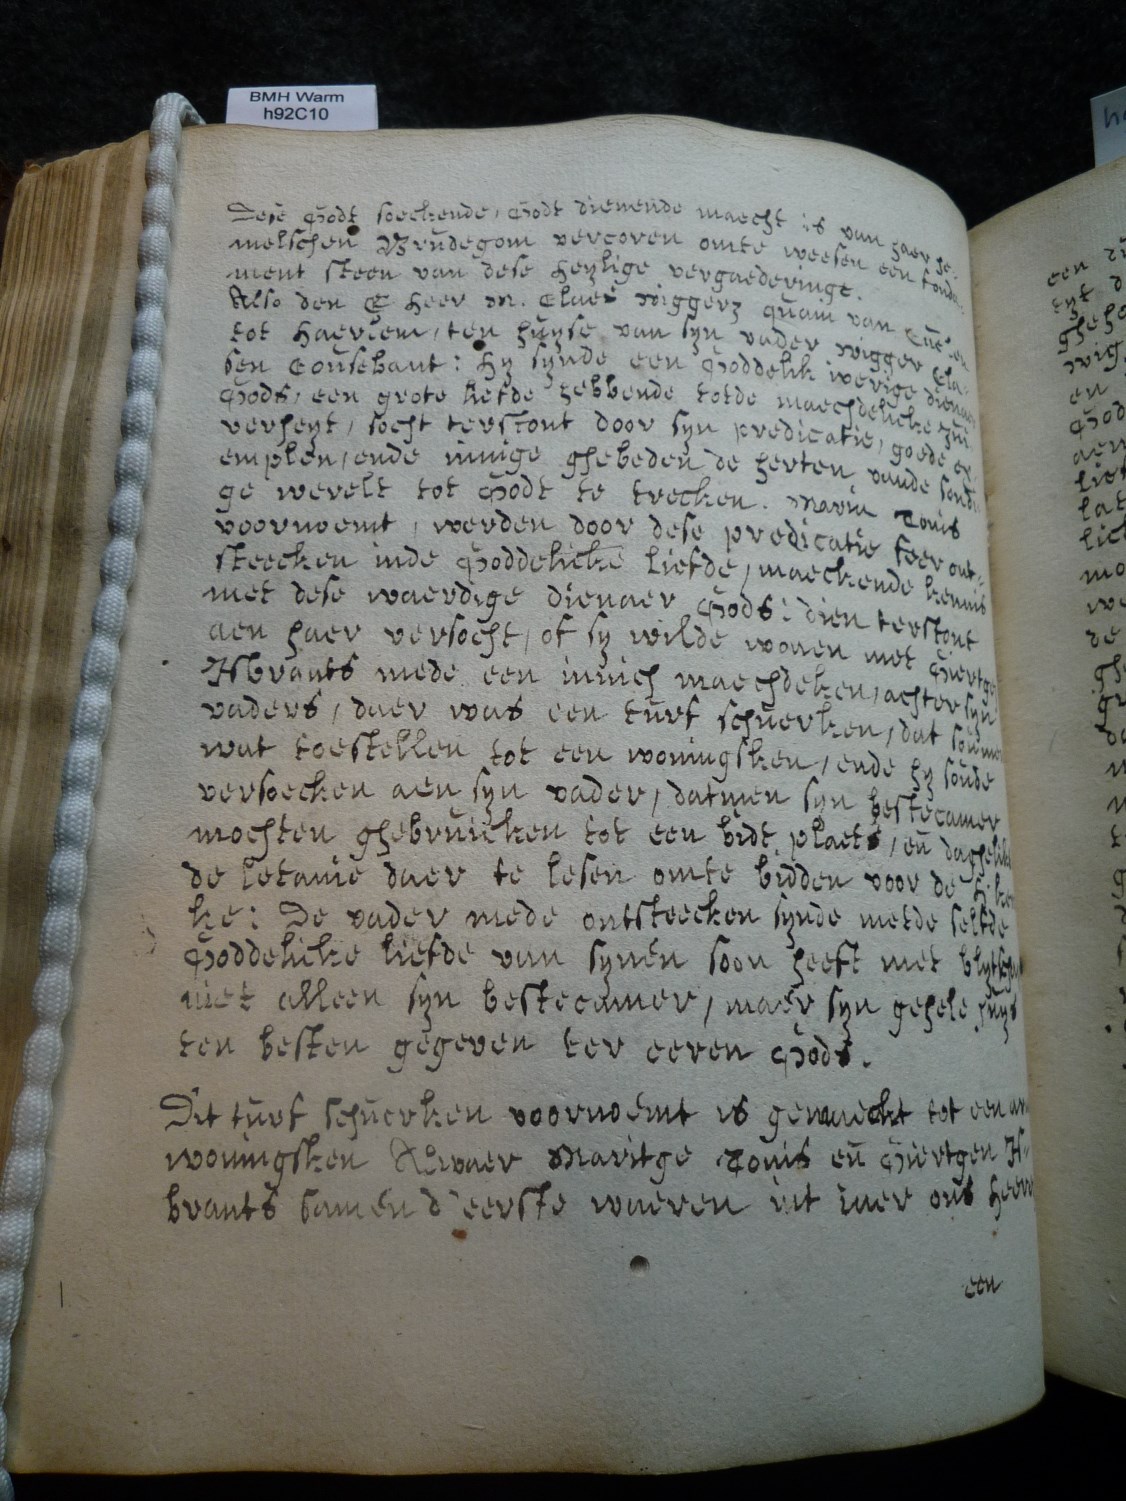 BMH Warm
h92C10
Dese Godt soeckende, Godt dienende maecht is van haer he-
melschen Brudegom vercoren omte weesen een fonda-
ment steen van dese heylige vergaederinge.
Also den E heer M. Claes Wiggerz quam van
tot Haerlem, ten huyse van syn vader Wigger Cla-
sen Cousebant: hy synde een Goddelik iverige dienaer
Gods, een grote liefde hebbende totde maechdelicke
verheyt, socht terstont door syn predicatie, goede ex-
emplen, ende innige ghebeden de herten vande sondi-
ge werelt tot Godt te trecken. Marin Tonis
voornoemt, werden door dese predicatie seer ont-
steecken inde Goddelicke liefde, maeckende kennis
met dese waerdige dienaer Gods: dien terstont
aen haer versocht, of sy wilde wonen met Giertge
IJsbrants mede een innich maechdeken, achter syn
vaders, daer was een turf schuerken, dat soumen
wat toestellen tot een woningsken, ende hy soude
versoecken aen syn vader, datmen syn bestecamer
mochten ghebruicken tot een bidt plaets, en̄ daghelicks
de letanie daer te lesen omte bidden voor de
ke: De vader mede ontsteecken synde metde selfde
Goddelicke liefde van synen soon heeft met blytschap
niet alleen syn bestecamer, maer syn gehele huys
ten besten gegeven ter eeren Gods.
Dit turf schuerken voornoemt is gemaeckt tot een
woningsken Alwaer Maritge Tonis en̄ Giertgen IJs-
brants samen d'eerste waeren int iaer ons heeren
een